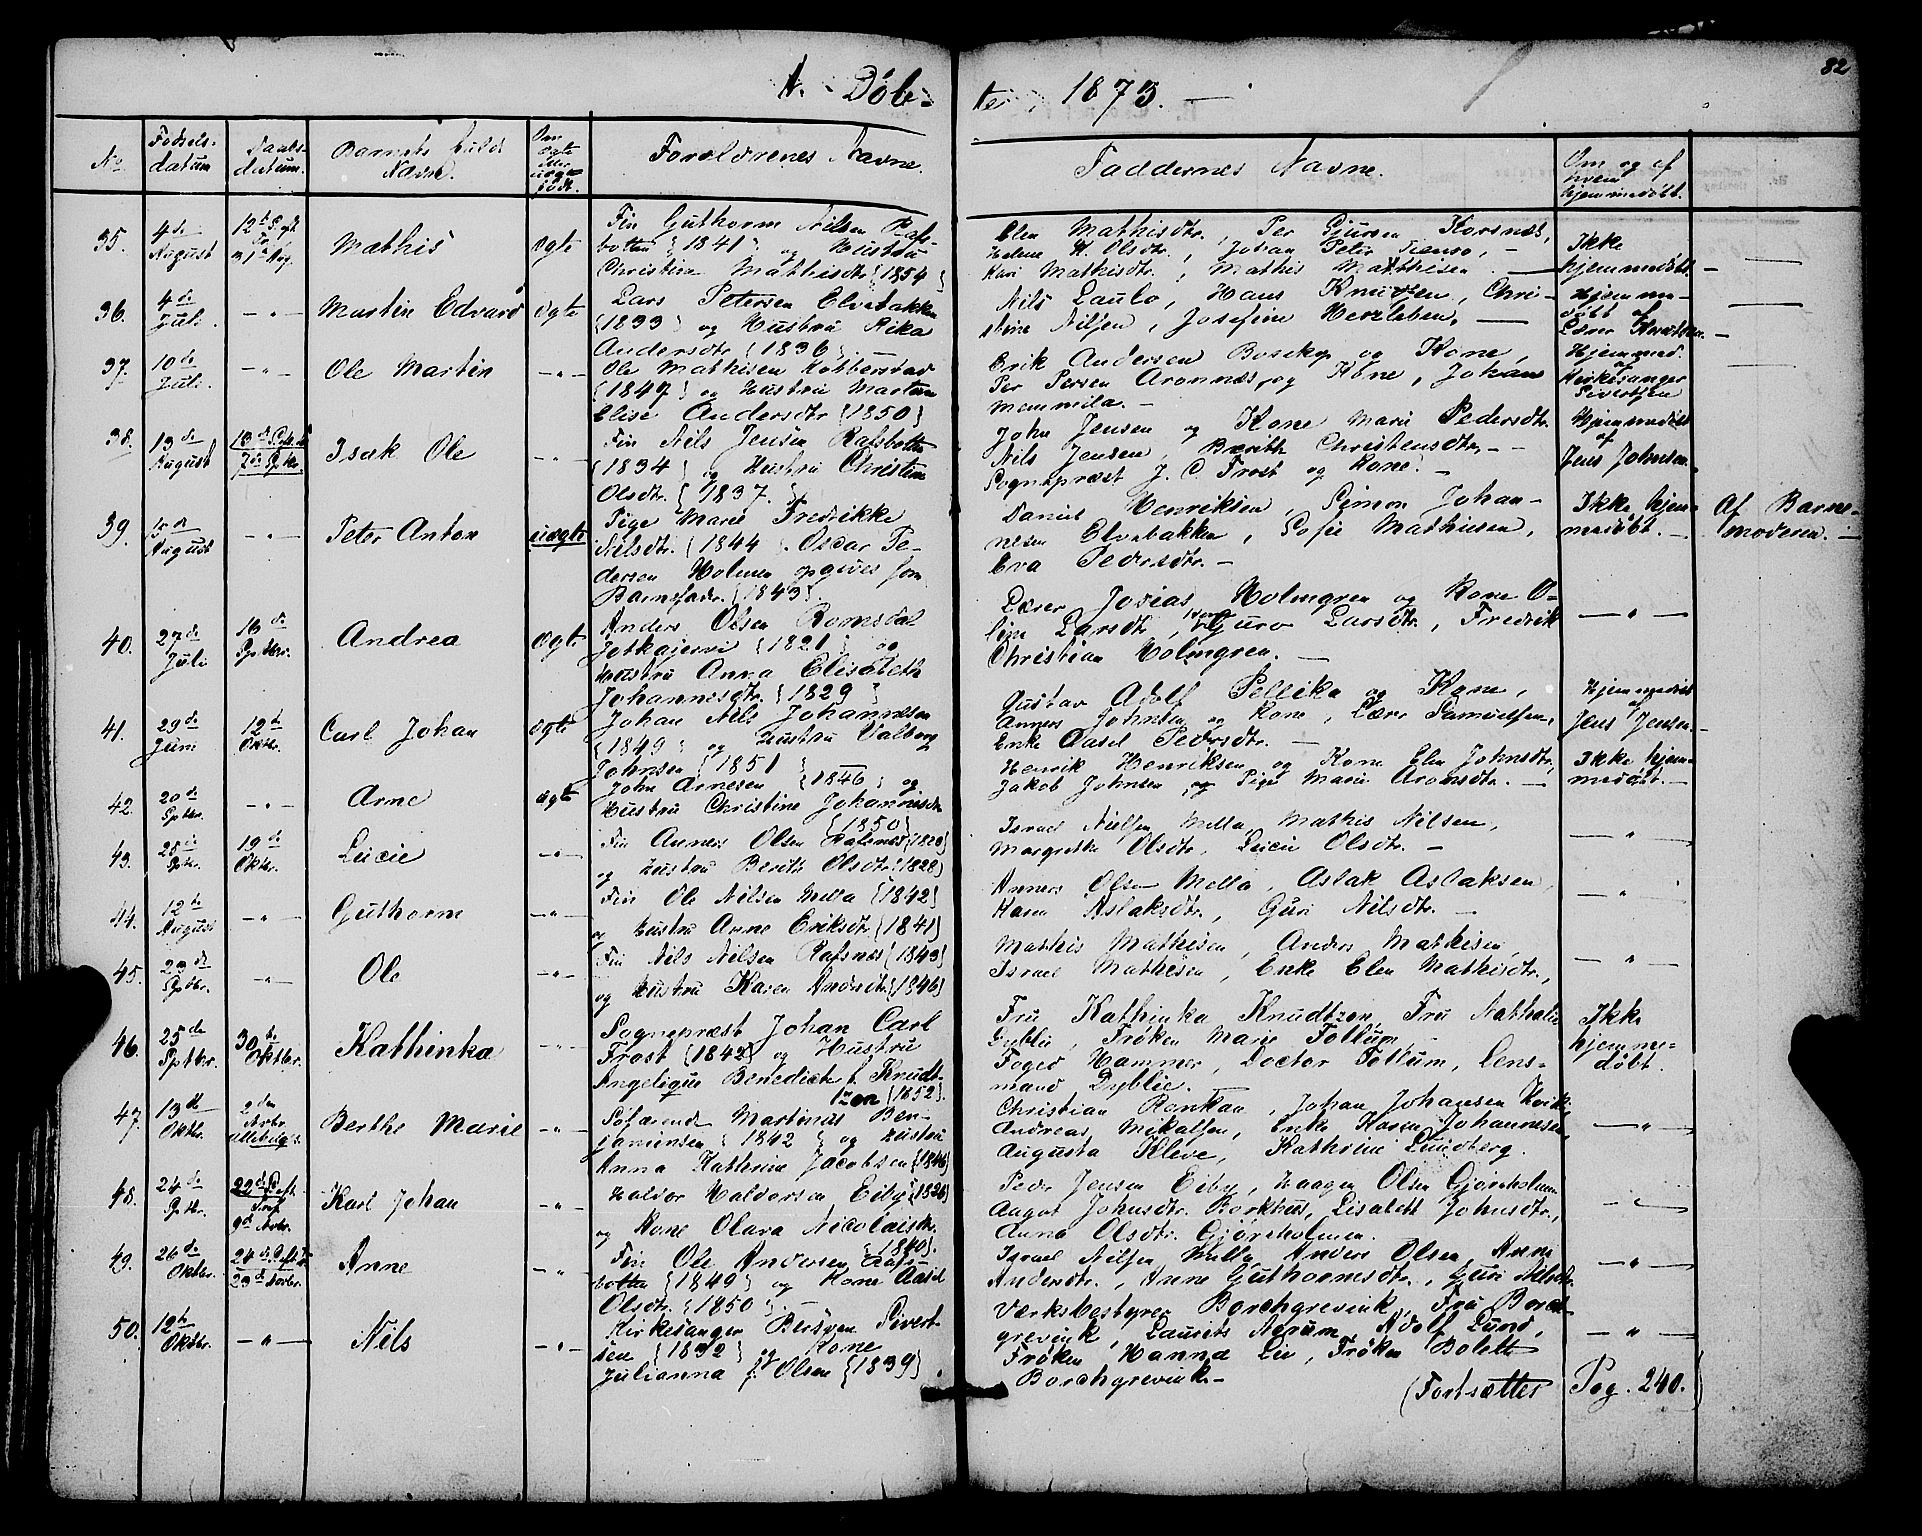 A. Døb-
te 1873.
82
No.
Fødsels-
datum
Daabs-
datum.
Barnets fulde
Navn.
Om
ægte
eller
uægte
født.
Forældrenes Navne.
Faddernes Navne.
Om og af
hvem
hjemmedøbt.
35.
4de
August
31te Aug.
Mathis
ægte
Fin Guthorm Nilsen Rafs-
botten {1841} og Hustru
Christine Mathisdtr. {1854}
Elen Mathisdtr., Per Gjursen Korsnæs,
Helene H. Olsdtr., Johan Peter
Kari Mathisdtr., Mathis Mathisen
Ikke
hjemmedøbt.
36.
4de
Juli
- " -
Martin Edvard
ægte
Lars Petersen Elvebakken
{1833} og Hustru Rika
Andersdtr. {1836}
Nils Laulo, Hans Knudsen, Chri-
stine Nilsen, Josefine Herzleben,
Hjemme-
døbt af
Lærer
37.
10de
Juli
- " -
Ole Martin
- " -
Ole Mathisen Kobberstad
{1847} og Hustru Martine
Elise Andersdtr. {1850}
Erik Andersen Bosekop og Kone,
Per Persen Aronnæs og Kone, Johan
Memmila. -
Hjemmed.
af
Kirkesanger
Sivertsen
38.
13de
August
7de Sptbr.
Isak Ole
- " -
Fin Nils Jensen Rafsbotten
{1834} og Hustru Christine
Olsdtr. {1837.}
John Jensen og Kone Marie Pedersdtr.
Nils Jensen, Berith Christensdtr. -
Sognepræst J. C. Frost og Kone. -
Hjemmedøbt
af
Jens Johnsen.
39.
August
- " -
Peter Anton
uægte
Pige Marie Fredrikke
Nilsdtr. {1844}. Oscar Pe-
dersen Holmen opgives som
Barnefader. {1843}.
Daniel Henriksen, Simon Johan-
nesen Elvebakken, Sofie Mathisen,
Eva Pedersdtr. -
Ikke hjem-
medøbt. -
Af Barne-
moderen. -
40.
27de
Juli
16de
Sptbr.
Andrea
ægte
Anders Olsen Romsdal
Jotkajervi {1821} og
Hustru Anna Elisabeth
Johannesdtr. {1829}
Lærer Josias Holmgren og Kone O-
line Larsdtr., Guro Larsdtr., Fredrik
Christian Holmgren. -
- " -
41.
29de
Juni
12te
Oktbr.
Carl Johan
ægte
Johan Nils Johannesen
{1849} og Hustru Valborg
Johnsen {1851}
Gustav Adolf Pellika og Kone,
Anners Johnsen og Kone, Lars Samuelsen,
Enke Aasel Pedersdtr. -
Hjemmedøbt
af
Jens Jensen.
42.
20de
Sptbr.
- " -
Arne
ægte
John Arnesen {1846} og
Hustru Christine Johannesdtr.
{1850}
Henrik Henriksen og Kone Elen Johnsdtr.,
Jakob Johnsen, og Pige Marie Aronsdtr. -
Ikke hjem-
medøbt. -
43.
25de
Sptbr.
19de
Oktbr.
Lucie
- " -
Fin Anners Olsen Rafsnæs {1828}
og Hustru Berith Olsdtr. {1828}
Israel Nilsen Mella, Mathis Nilsen,
Margrethe Olsdtr., Lucie Olsdtr. -
- " -
44.
12te
August
- " -
Guthorm
- " -
Fin Ole Nilsen Mella {1842}
og Hustru Anne Eriksdtr. {1841}
Anners Olsen Mella, Aslak Aslaksen,
Karen Aslaksdtr., Guri Nilsdtr. -
- " -
45.
23de
Sptbr.
- " -
Ole
- " -
Fin Nils Nilsen Rafsnæs {1843}
og Hustru Karen Andersdtr. {1846}
Mathis Mathisen, Anders Mathisen,
Israel Mathisen, Enke Elen Mathisdtr.,
- " -
46.
25de
Sptbr.
30te
Oktbr.
Kathinka
- " -
Sognepræst Johan Carl
Frost {1842} og Hustru
Angelique Benedicte f. Knudt-
zon {1852}.
Fru Kathinka Knudtzon, Fru Nathalie
Dyblie, Frøken Marie Follum,
Foged Hammer, Doctor Follum, Lens-
mand Dyblie.
Ikke
hjemme-
døbt.
47.
13de
Oktbr.
2den
Novbr.
Berthe Marie
- " -
Søfarende Martinus Ben-
jaminsen {1842} og Hustru
Anna Kathrine Jacobsen {1846}
Christian Ronkan, Johan Johansen Kvik,
Andreas Mikalsen, Enke Karen Johannesen,
Augusta Kleve, Kathrine Lundberg.
- " -
48.
24de
Sptbr.
9de Novbr.
Karl Johan
- " -
Haldor Haldorsen Eiby {1826}
og Kone Olava Nicolaisdtr.
{1840}.
Peder Jensen Eiby, Haagen Olsen Gjøreholmen
August Johnsdtr. Borkhus, Lisabeth Johnsdtr.,
Anna Olsdtr. Gjøreholmen.
- " -
49.
26de
Oktbr.
23de Novbr.
Anne
- " -
Fin Ole Andersen Rafs-
botten {1849} og Kone Aasel
Olsdtr. {1850}. -
Israel Nilsen Mella, Anders Olsen, Anne
Andersdtr., Anne Guthormsdtr., Guri Nilsdtr.
- " -
50.
12te
Oktbr.
- " -
Nils
- " -
Kirkesanger Bersven Sivert-
sen {1832} og Kone
Julianna f. Olsen {1839}.
Værksbestyrer Borchgrevink, Fru Borch-
grevink, Laurits Aarum, Adolf Lund,
Frøken Hanna Lie, Frøken Bolette
Borchgrevink. -
- " -
(Fortsættes Pag. 240.)